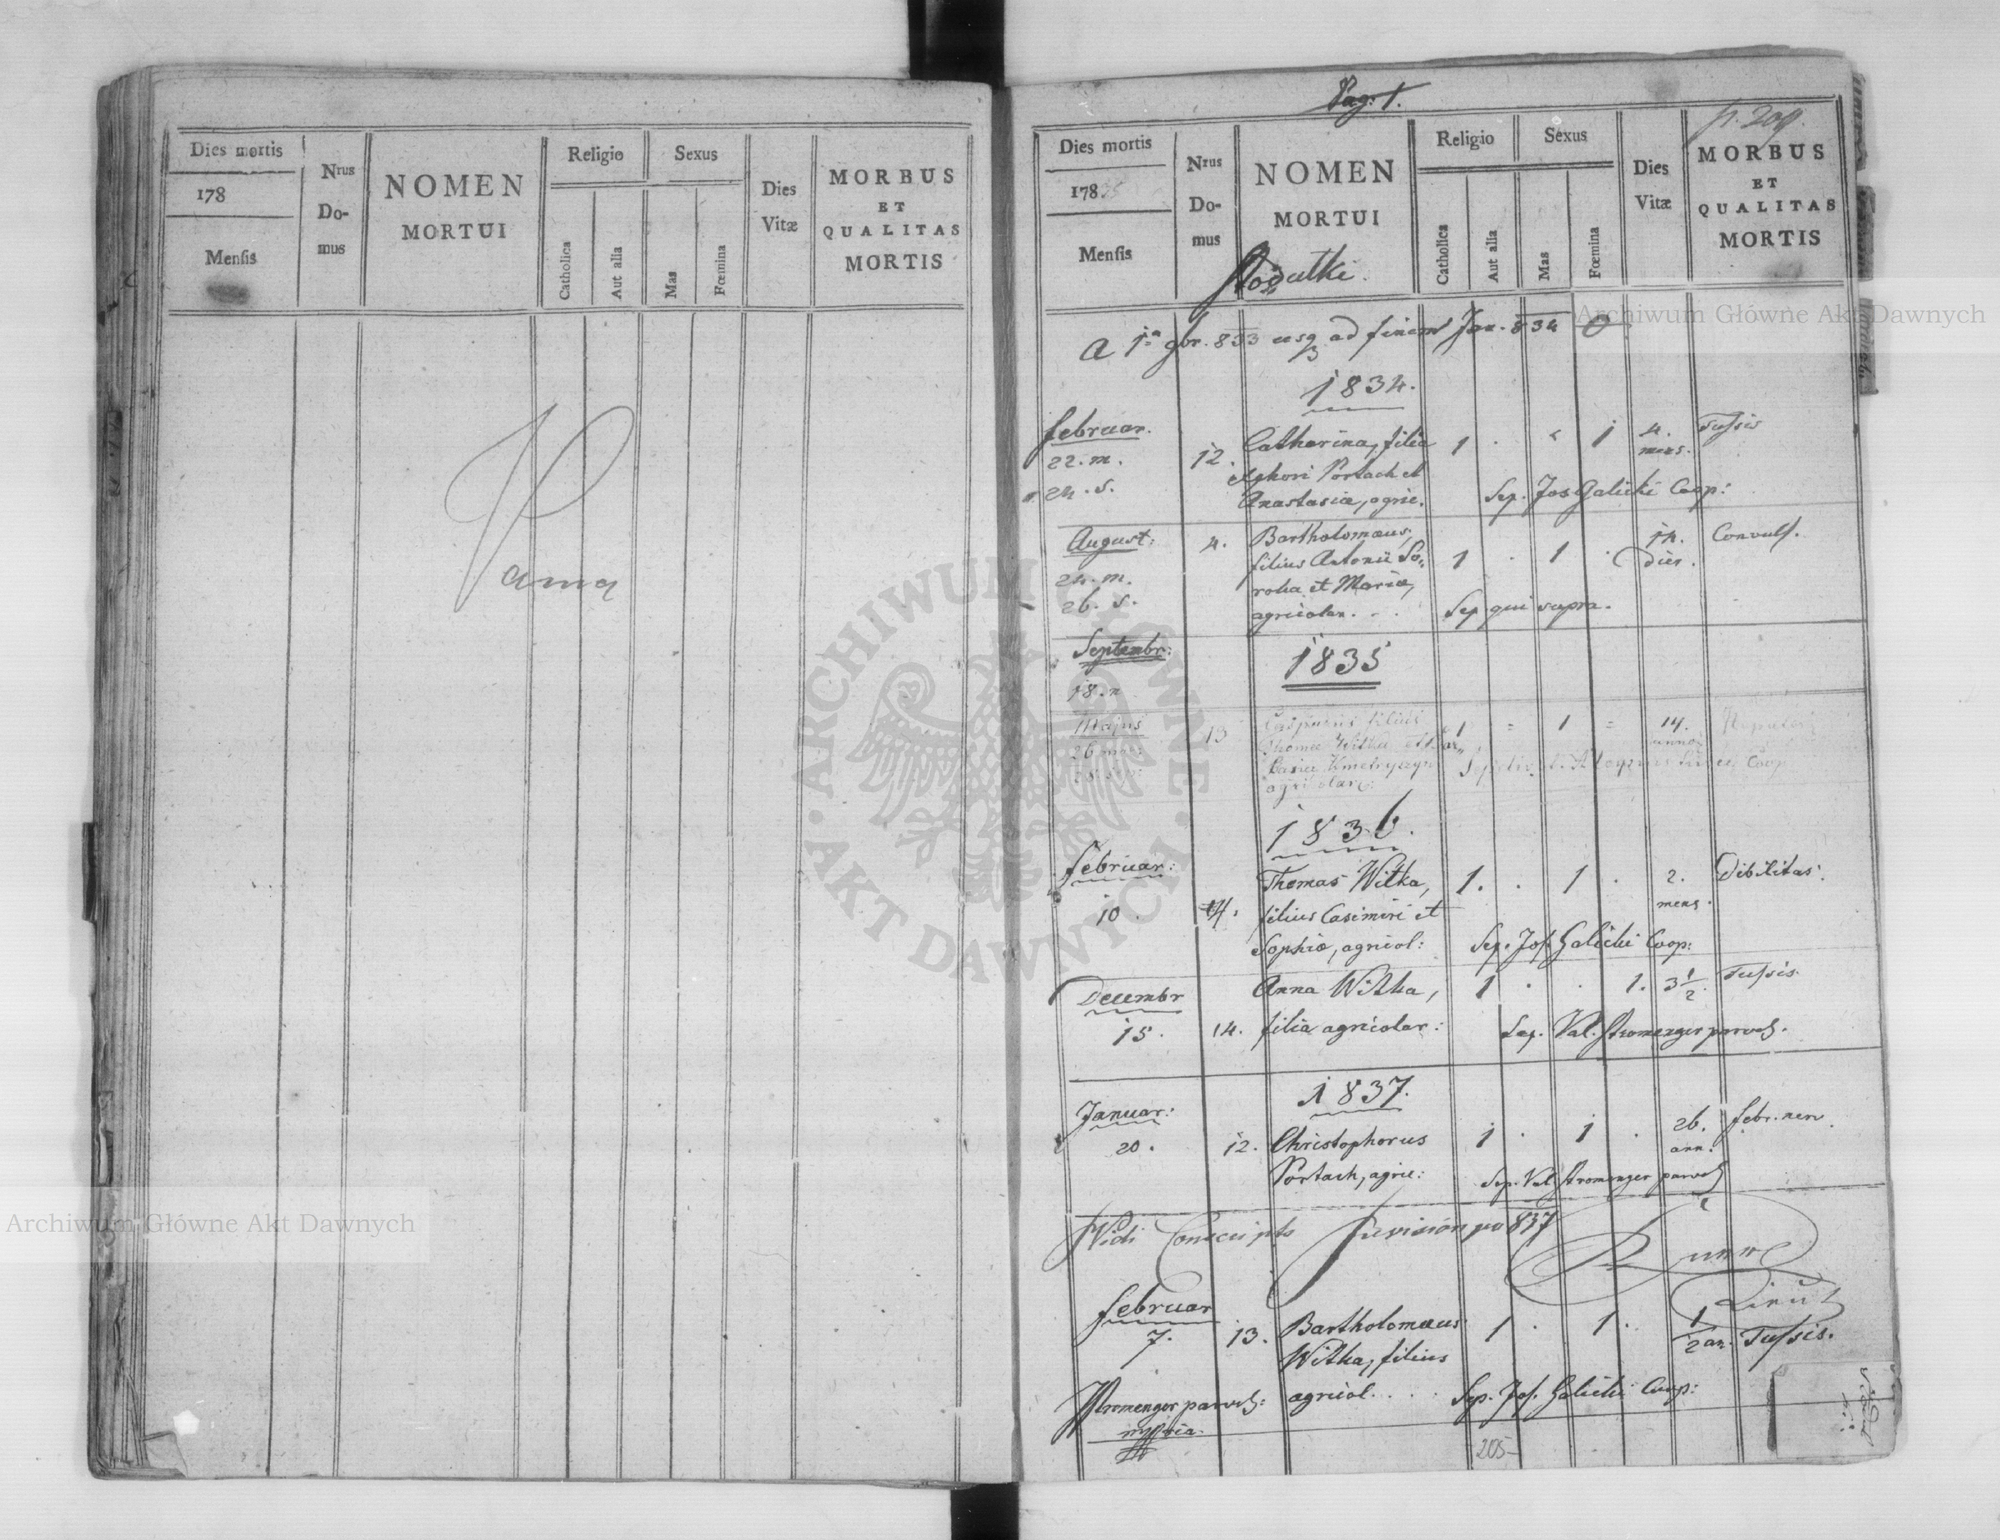 Dies mortis
178
Mensis
Nrus
Do-
mus
NOMEN
MORTUI
Religio
Catholica
Aut alia
Sexus
Mas
Fœmina
Dies
Vitæ
MORBUS
ET
QUALITAS
MORTIS
Pag: 1.
p. 209.
Dies mortis
178
Mensis
Nrus
Do-
mus
NOMEN
MORTUI
Religio
Catholica
Aut alia
Sexus
Mas
Fœmina
Dies
Vitæ
MORBUS
ET
QUALITAS
MORTIS
A 1a 9br. 833 usq ad finem Jan. 834 0
1834.
februar.
22. m. 12. Catharina, filia 1 . . 1 4. Tussis
mens.
24. s. Portach et
Anastasiæ, agric. Sep. Jos Galicki Coop:
August: 4. Bartholomæus, 14. Convuls.
24. m. filius Antonii So- 1 . 1 . dier.
26. s. et Mariæ,
agricolar. . . Sep qui supra.
Septembr:
1835
18. n
Majus 13 filius 1 = 1 = 14.
26 Thomæ Witka annor
agricolar. Coop
1836.
februar: Thomas Witka, 1. . 1 . 2. Debilitas.
10. 14. filius Casimiri et mens.
Sophiæ, agricol: Sep. Jos. Galicki Coop:
Decembr Anna Witka, 1 . . 1. 3 1/2 Tussis.
15. 14. filia agricolar: Sep. Val. Stromenger paroch.
1837.
Januar:
20. 12. Christophorus 1 . 1 . 26. febr. nerv.
ann.
Portach, agric: Sep. Val Stromenger paroch
Vidi Conscripts Revision pro 837
februar
7. 13. Bartholomæus 1 . 1. 1/2 an. Tussis.
Witka, filius
agricol. . . . Sep. Jos. Galicki Coop:
Stromenger paroch:
205
ARCHIWUM GŁÓWNE AKT DAWNYCH
Archiwum Główne Akt Dawnych
Archiwum Główne Akt Dawnych